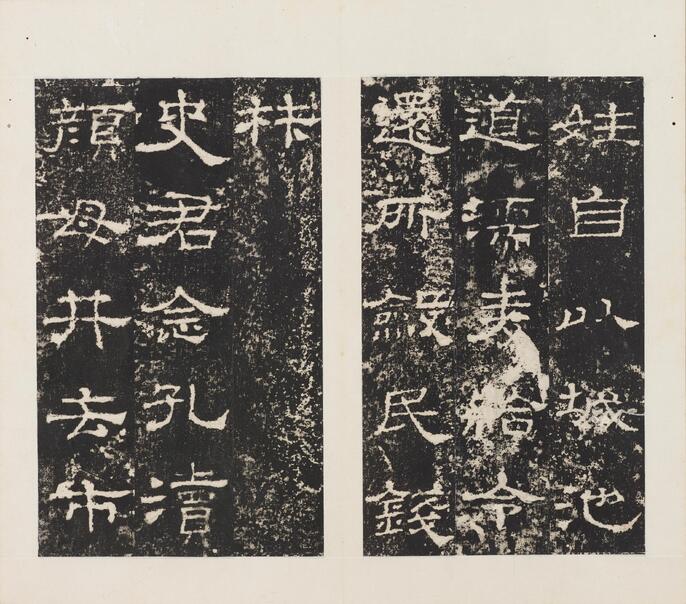 姓自以城池
道濡麥給令
還所斂民錢
材
史君念孔瀆
顏母井去市